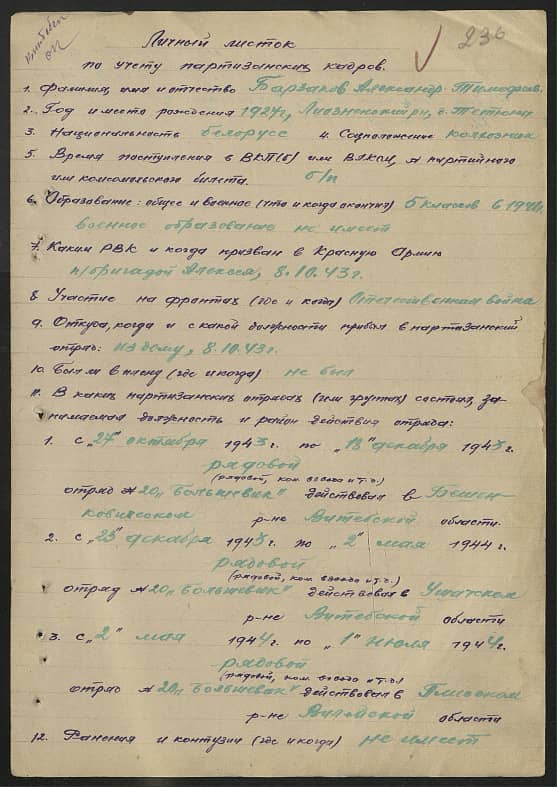 236
Личный листок
по учету партизанских кадров.
1. Фамилия, имя и отчество Барзаков Александр Тимофеев.
2. Год и место рождения 1927 г, Лиозненский рн, д. Тетюни
3. Национальность белорусс 4. Соцположение колхозник
5. Время поступления в ВКП(б) или ВЛКСМ, № партийного
или комсомольского билета. б/п
6. Образование: общее и военное (что и когда окончил) 5 классов в 1940г.
военное образование не имеет
7. Каким РВК и когда призван в Красную Армию
п/бригадой Алексея, 8.10.43г.
8 Участие на фронтах (где и когда) Отечественная война
9. Откуда, когда и с какой должности прибыл в партизанский
отряд: из дому, 8.10.43г.
10. Был ли в плену (где и когда) не был
11. В каких партизанских отрядах (или группах) состоял, за-
нимаемая должность и район действия отряда:
1. с „27" октября 1943 г. по „18" декабря 1943 г.
рядовой
(рядовой, ком. взвода и т.д.)
отряд №20 „Большевик" действовал в Бешен-
ковичском р-не Витебской области.
2. с „23" декабря 1943 г. по „2" мая 1944 г.
рядовой
(рядовой, ком взвода и т.д.)
отряд №20 „Большевик" действовал в Ушатском
р-не Витебской области
3. с „2" мая 1944 г. по „1" июля 1944 г.
рядовой
(рядовой, ком. взвода и т.д.)
отряд №20 „Большевик" действовал в Плисском
р-не Вилейской области
12. Ранения и контузии (где и когда) не имеет